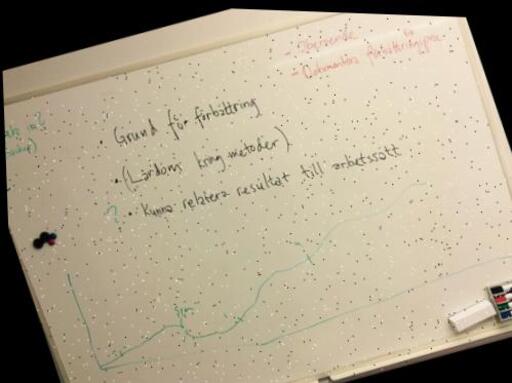 - Dokumentera förbättringsproc
• Grund för förbättring
• (Lärdom kring metoder)
? • Kunna relatera resultat till arbetssätt